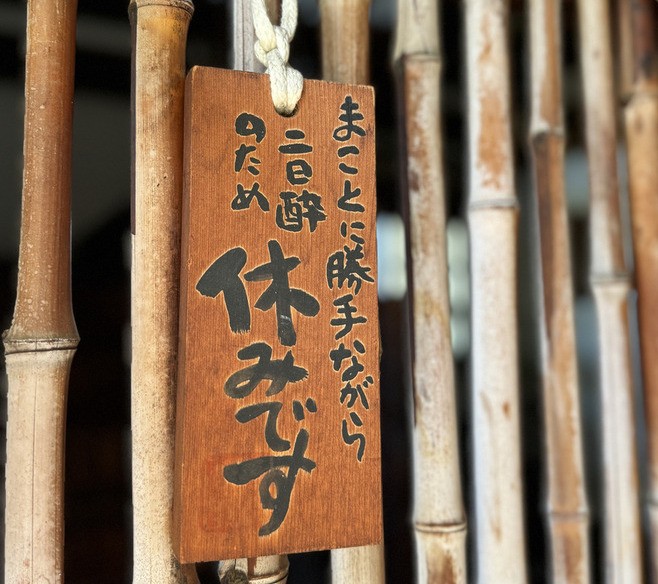 まことに勝手ながら
二日酔
のため
休みです